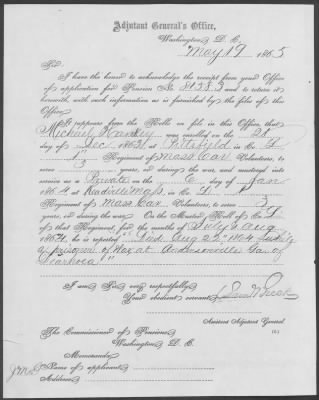 Adjutant General's Office,
Washington, D. C.
May 19 1865
Sir:
I have the honor to acknowledge the receipt from your Office
of application for Pension No. 81383 and to return it
herewith, with such information as is furnished by the files of this
Office.
It appears from the Roll on file in this Office, that
Michael was enrolled on the 21
day of Dec 1863, at Pittsfield in Co.
Regiment of Mass Cav Volunteers, to serve
3 years, or during the war, and mustered into
service as a Private on the 6 day of Jan
1864, at Readville Mass, in Co.
Regiment of Mass Cav Volunteers, to serve 3
years, or during the war. On the Muster Roll of Co.
of that Regiment, for the months of July & Aug
1864, he is reported "Died Aug 22" 1864 while
a prisoner of War at Andersonville Ga. of
I am Sir, very respectfully,
Your obedient servant,
Assistant Adjutant General
The Commissioner of Pensions,
Washington, D. C.
Memoranda:
Name of applicant
Address